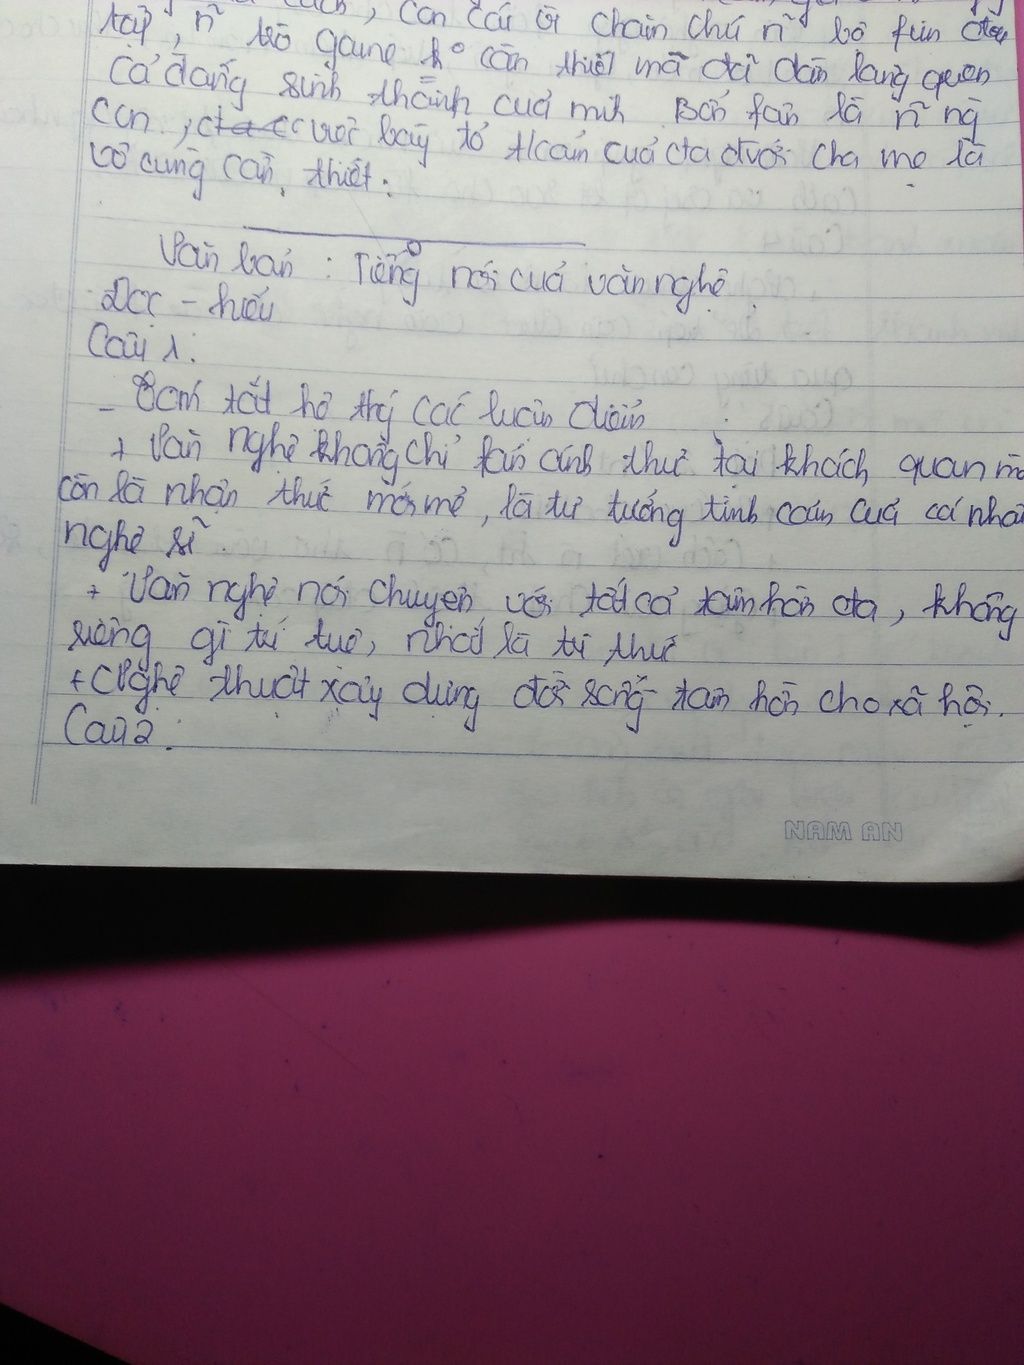 cách, con cái ởi chăm chú ñ bô fim
tập, ñ trò game k° cần thiết mà đã dần lãng quên
cả đấng sinh thành cuả mìh. Bổn fận là ñ ng
con, việc bày tỏ t/cảm cuả cta đ/với cha mẹ là
vô cùng cần thiết.
Văn bản : Tiếng nói cuả văn nghệ
Đọc - hiểu
Câu 1:
- Tóm tắt hệ thg các luận điểm
+ Văn nghệ không chỉ fản ánh thực tại khách quan mà
còn là nhận thức mới mẻ, là tư tưởng tình cảm cuả cá nhân
nghệ sĩ
+ Văn nghệ nói chuyện với tất cả tâm hồn cta, không
riêng gì trí tuệ, nhất là tri thức
+ Nghệ thuật xây dựng đời sống tâm hồn cho xã hội.
Câu 2:
NAM AN